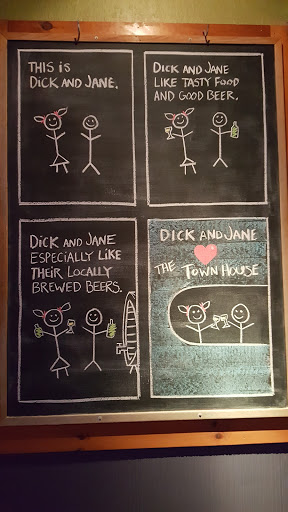 THIS IS
DICK AND JANE.
DICK AND JANE
LIKE TASTY FOOD
AND GOOD BEER.
DICK AND JANE
ESPECIALLY LIKE
THEIR LOCALLY
BREWED BEERS.
DICK AND JANE
THE TOWN HOUSE